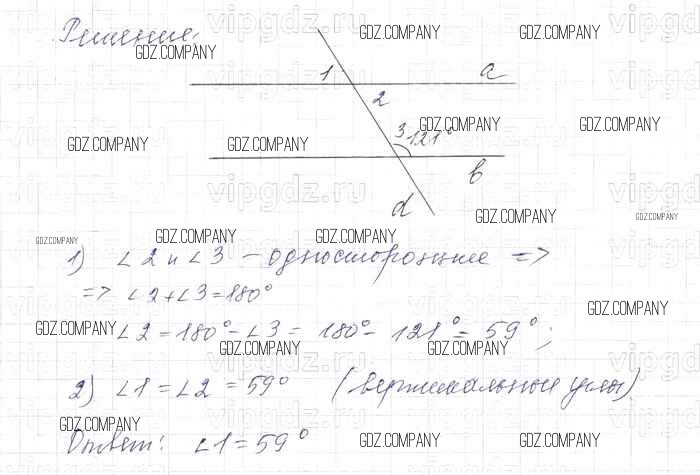 Решение:
1 a
2
3 121°
b
d
1) ∠2 и ∠3 – односторонние =>
=> ∠2+∠3=180°
∠2=180°-∠3= 180°- 121°= 59°;
2) ∠1=∠2=59° (вертикальные углы).
Ответ: ∠1=59°
GDZ.COMPANY GDZ.COMPANY
GDZ.COMPANY
GDZ.COMPANY
GDZ.COMPANY GDZ.COMPANY
GDZ.COMPANY GDZ.COMPANY
GDZ.COMPANY GDZ.COMPANY GDZ.COMPANY
GDZ.COMPANY
GDZ.COMPANY
GDZ.COMPANY GDZ.COMPANY
GDZ.COMPANY
GDZ.COMPANY GDZ.COMPANY
vipgdz.ru vipgdz.ru
vipgdz.ru
vipgdz.ru
vipgdz.ru
vipgdz.ru
vipgdz.ru